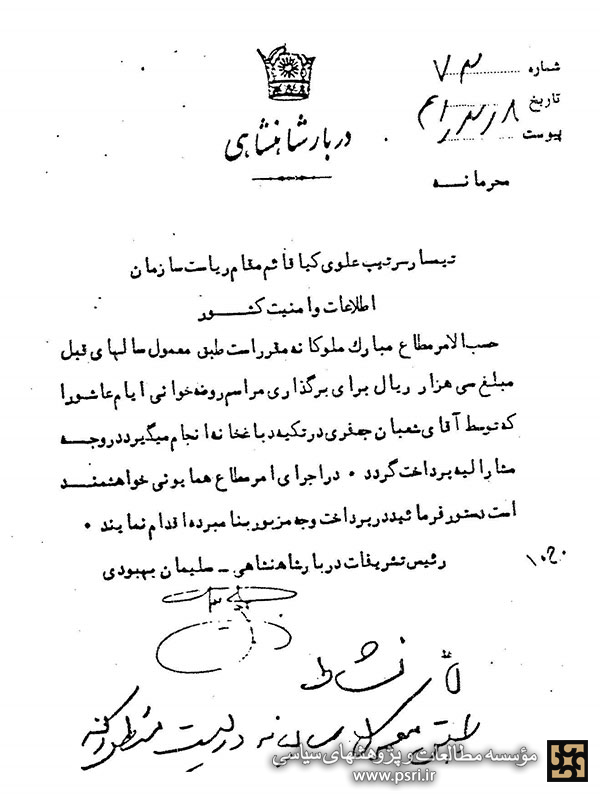 شماره ۷۳
تاریخ ۴۱ر۳ر۸
پیوست
دربار شاهنشاهی
محرمانـــه
تیمسار سرتیپ علوی کیا قائم مقام ریاست سازمان
اطلاعات و امنیت کشـــور
حسب الامر مطاع مبارك ملوکانه مقرر است طبق معمول سالهای قبل
مبلغ سی هزار ریال برای برگذاری مراسم روضه خوانی ایام عاشورا
که توسط آقای شعبان جعفری در تکیه دباغخانه انجام میگیرد در وجـــه
مشارالیه پرداخت گردد ۰ در اجرای امر مطاع همایونی خواهشمنـــد
است دستور فرمائید در پرداخت وجه مزبور بنامبرده اقدام نمایند ۰
رئیس تشریفات دربار شاهنشاهی ـ سلیمان بهبودی
نشاط
طبق معمول سالیانه در لیست منظور کنید
مؤسسه مطالعات و پژوهشهای سیاسی
www.psri.ir